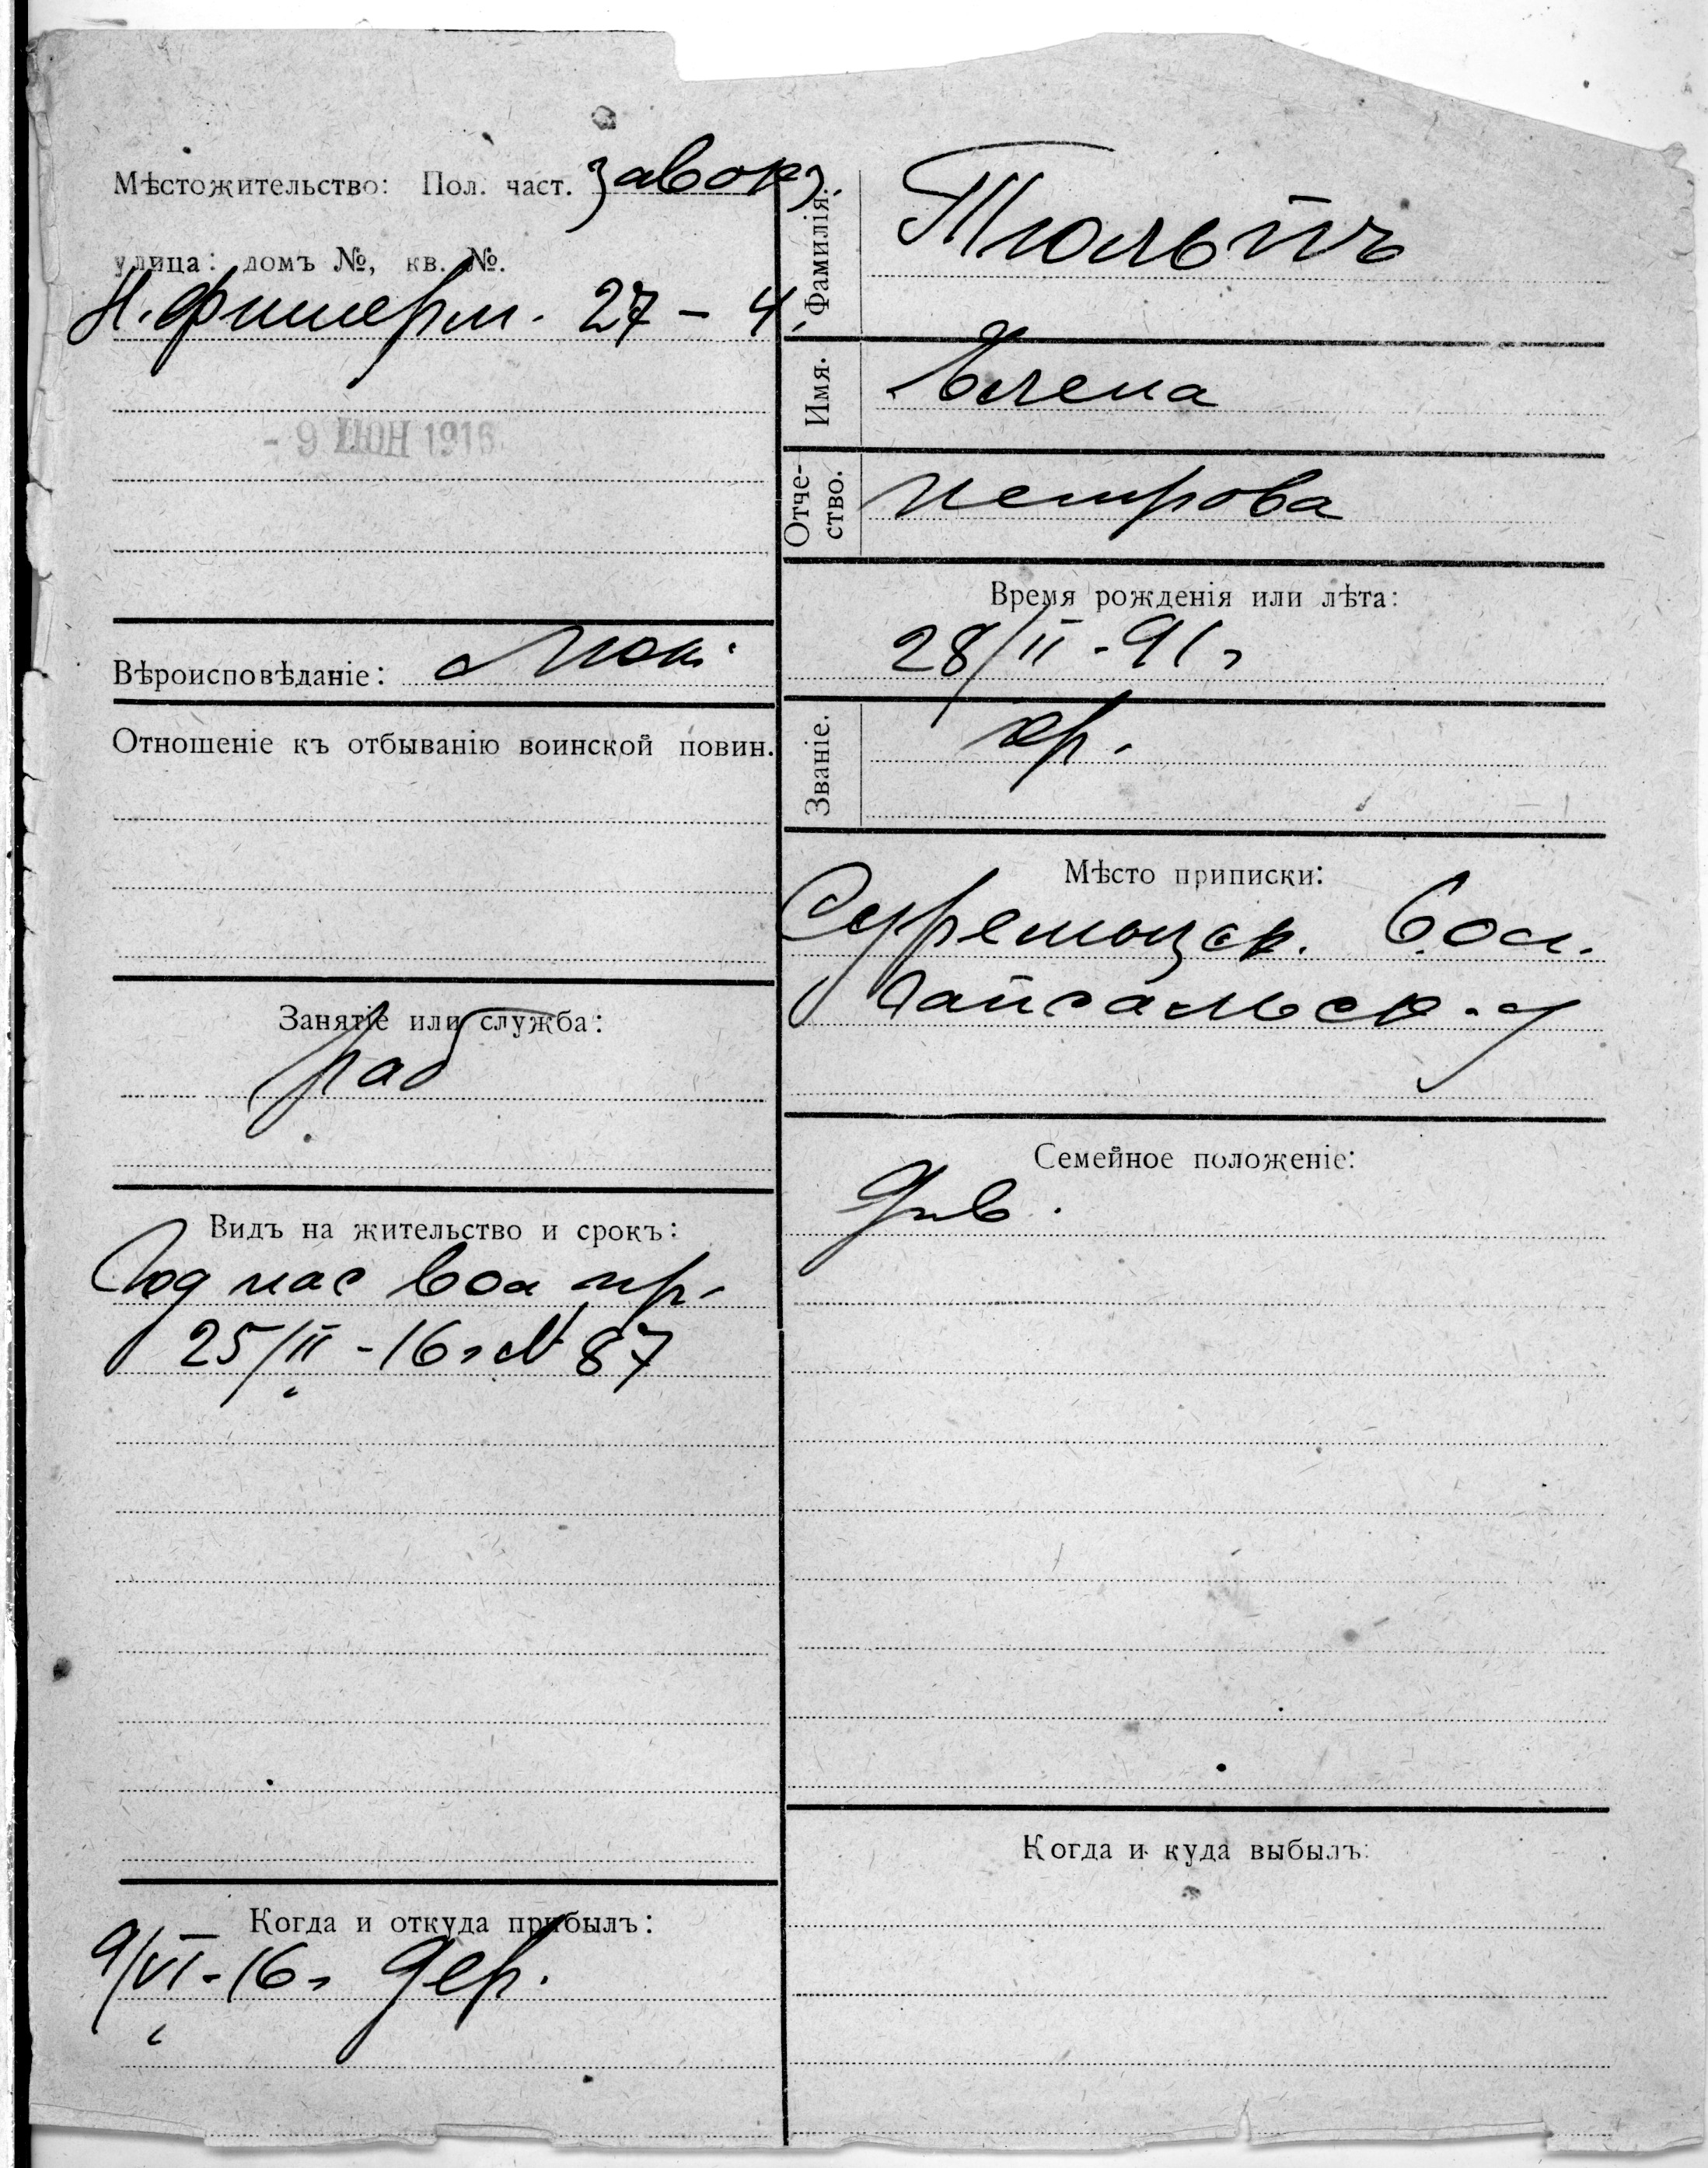 Мѣстожительство: Пол. част. Завокз.
улица: домъ №, кв. №.
Н. Фишерм. 27 – 4.
- 9 ІЮН 1916
Вѣроисповѣданіе: Лют.
Отношеніе къ отбыванію воинской повин.
Занятіе или служба:
раб
Видъ на жительство и срокъ:
Год пас вол пр.
25/II - 16 г № 87
Когда и откуда прибылъ:
9/VI - 16 г дер.
Фамилія:
Тюльпъ
Имя.
Елена
Отче-
ство.
Петрова
Время рожденія или лѣта:
28/II - 91 г
Званіе.
кр.
Мѣсто приписки:
вол.
Гапсальск. у
Семейное положеніе:
Дѣв.
Когда и куда выбылъ: